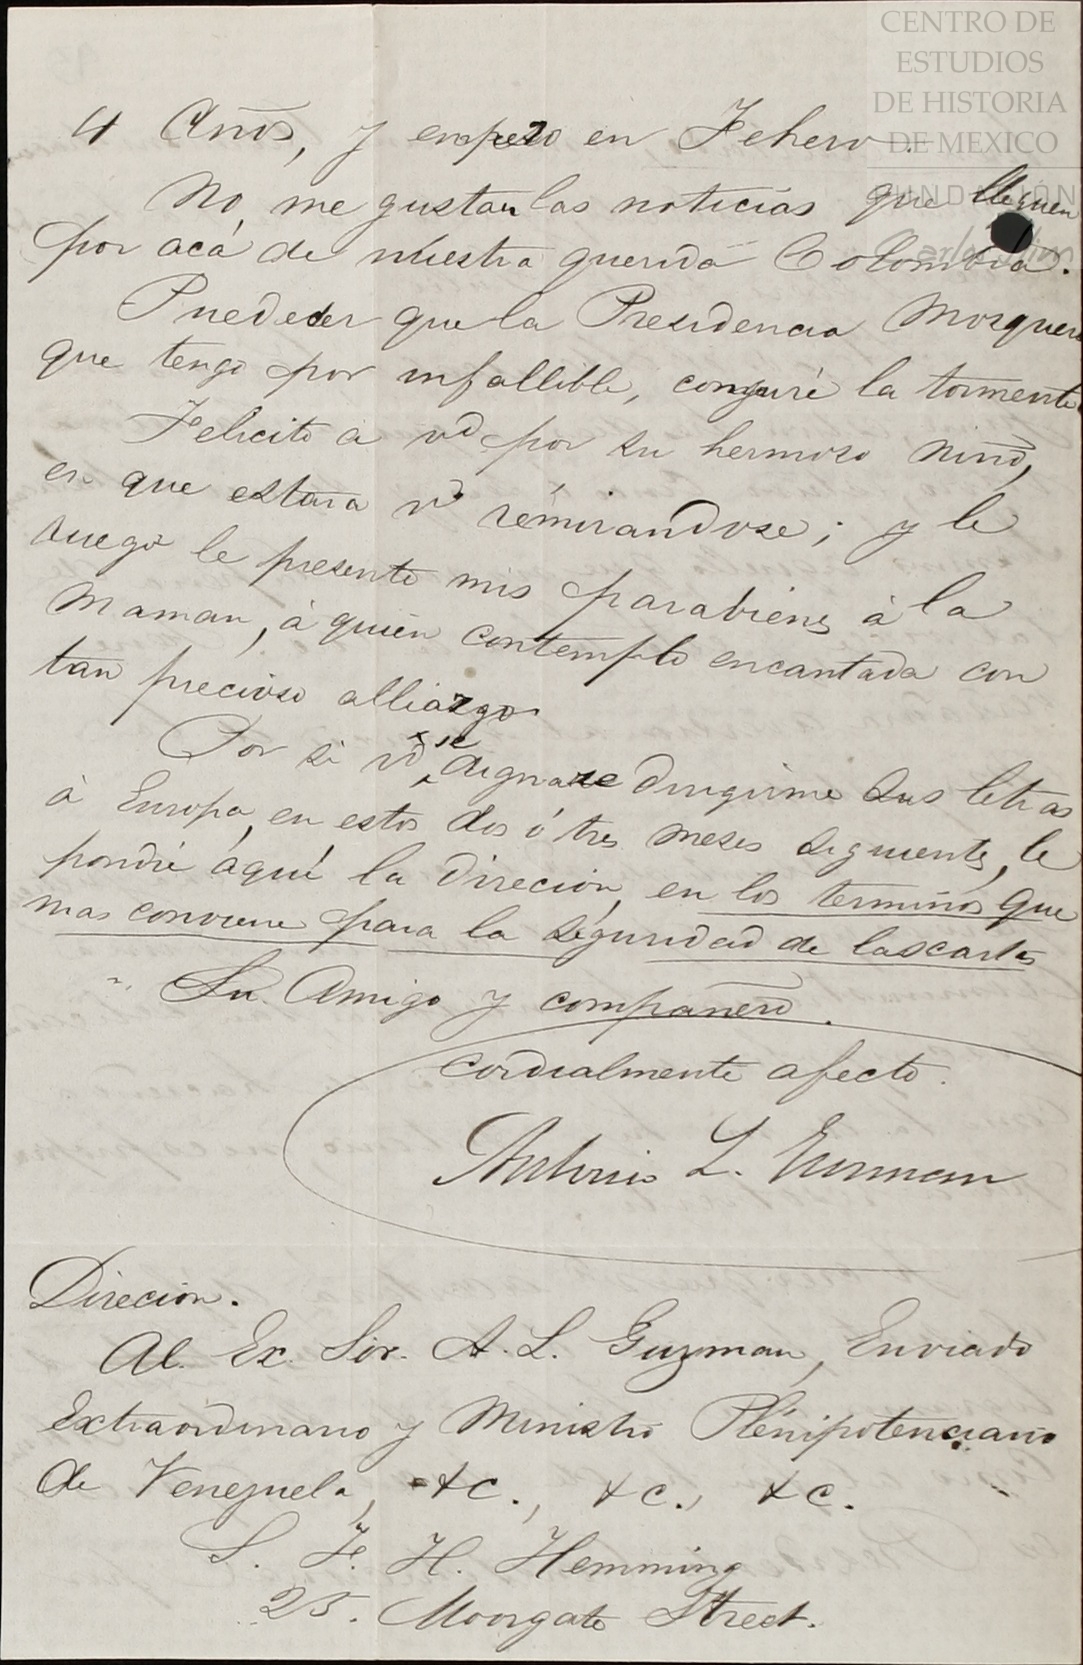 CENTRO DE
ESTUDIOS
DE HISTORIA
DE MEXICO
FUNDACIÓN
Carlos Slim
4 Años, y empezo en Febero.
No, me gustan las noticias que lleguen
por acá de nuestra querida Colombia.
Puede ser que la Presidencia Mosquera
que tengo por infallible, conjuré la tormenta
Felicito a vd por su hermoso niño,
en que estara vd remirandose; y le
ruego le presente mis parabienes à la
Maman, á quien contemplo encantada con
tan precioso alliazgo
Por si vd se dignase dirigirme sus letras
à Europa, en estos dos ó tres meses siguientes, le
pondré aquí la direcion, en los terminos que
mas conviene para la seguridad de las cartas
Su Amigo y compañero.
cordialmente afecto.
Antonio L. Guzman
Direcion.
Al. Ex. Sör. A. L. Guzman, Enviado
Extraordinario y Ministro Plénipotenciario
de Venezuela, &c., &c., &c.
S. F. H. Hemming
25. Moorgate Street.